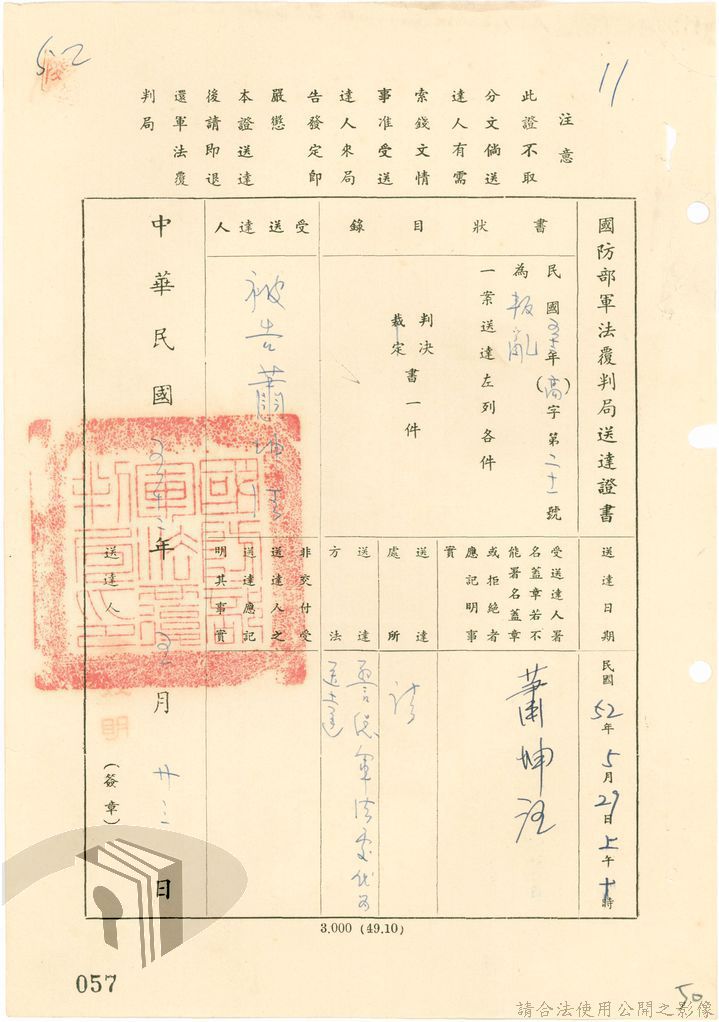 52
11
注意
此證不取
分文倘送
達人有需
索錢文情
事准受送
達人來局
告發定即
嚴懲
本證送達
後請即退
還軍法覆
判局
國防部軍法覆判局送達證書
書狀目錄
民國五十二年(高)字第二十一號
為叛亂
一案送達左列各件
判決
裁定
書一件
受送達人
被告蕭坤
中華民國五十二年五月廿三日
送達日期
民國52年5月29日上午十時
受送達人署
名蓋章若不
能署名蓋章
或拒絕者
應記明事
實
蕭坤
送達處所
送達方法
非交付受
送達人之
送達應記
明其事實
送達人
(簽章)
國防部
軍法覆
判局印
3.000 (49.10)
057
50
請合法使用公開之影像